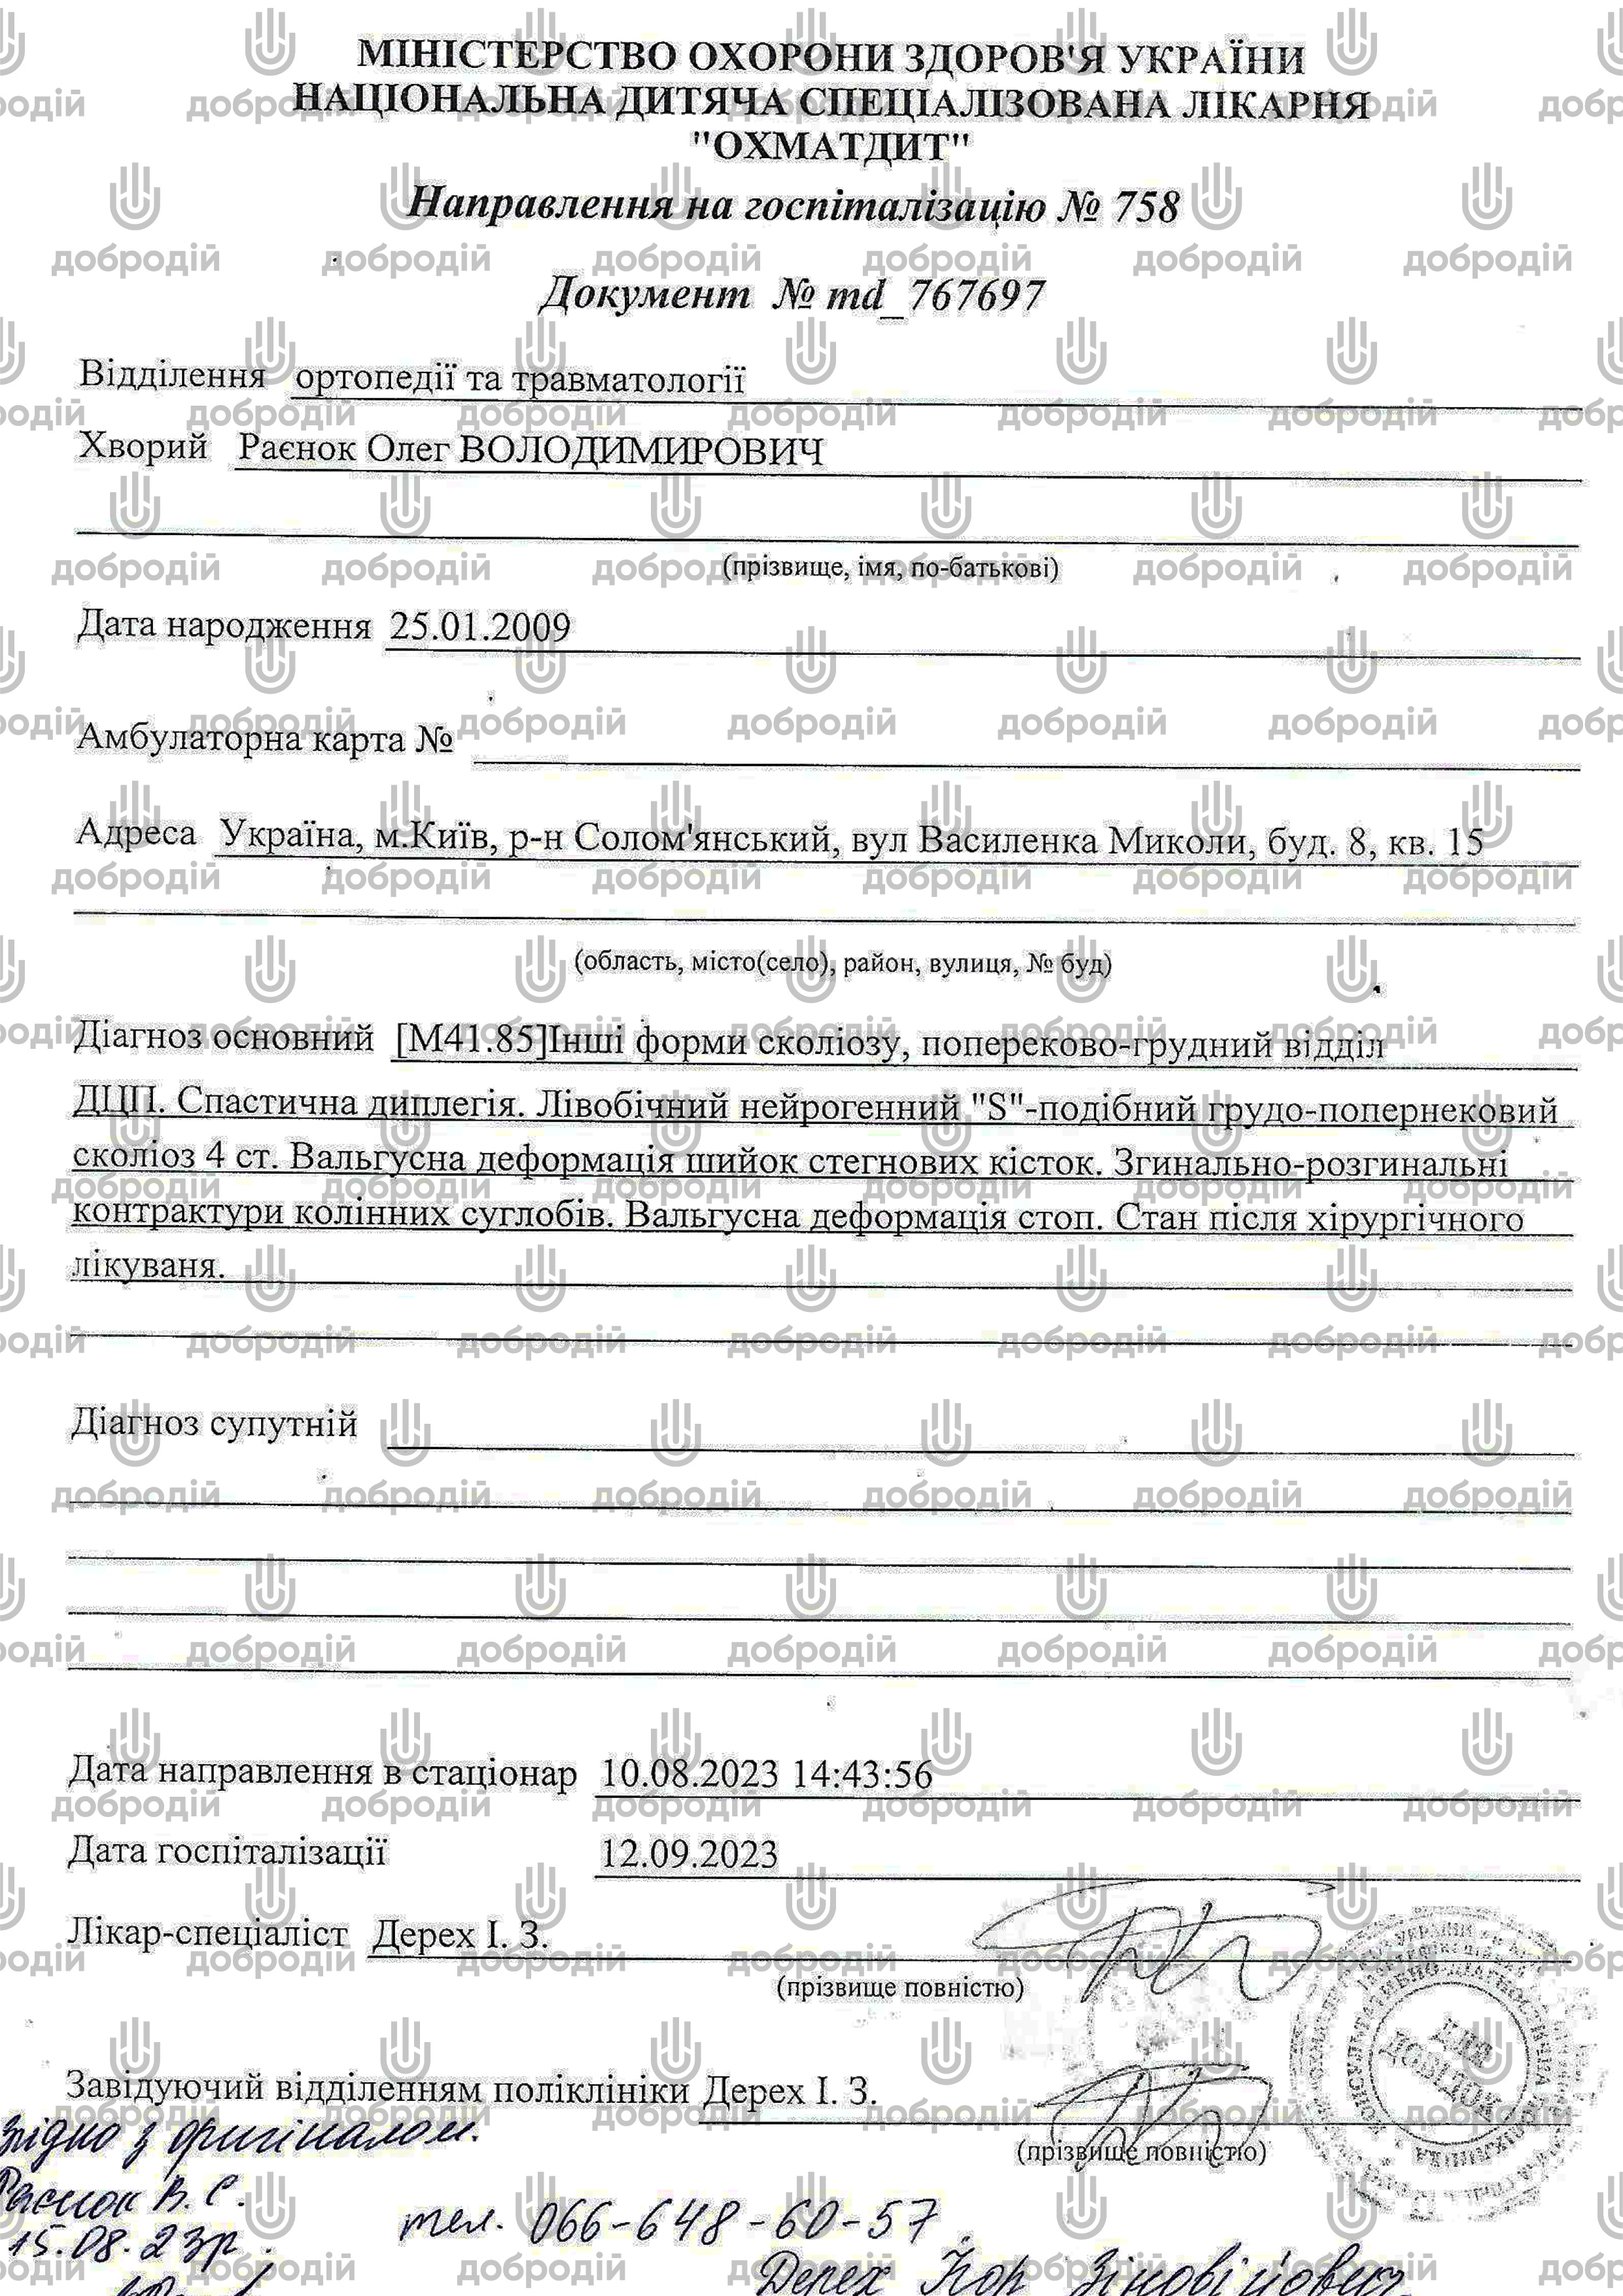 МІНІСТЕРСТВО ОХОРОНИ ЗДОРОВ'Я УКРАЇНИ
НАЦІОНАЛЬНА ДИТЯЧА СПЕЦІАЛІЗОВАНА ЛІКАРНЯ
"ОХМАТДИТ"
Направлення на госпіталізацію № 758
Документ № md_767697
Відділення ортопедії та травматології
Хворий Раєнок Олег ВОЛОДИМИРОВИЧ
(прізвище, імя, по-батькові)
Дата народження 25.01.2009
Амбулаторна карта №
Адреса Україна, м.Київ, р-н Солом'янський, вул Василенка Миколи, буд. 8, кв. 15
(область, місто(село), район, вулиця, № буд)
Діагноз основний [M41.85]Інші форми сколіозу, попереково-грудний відділ
ДЦП. Спастична диплегія. Лівобічний нейрогенний "S"-подібний грудо-попернековий
сколіоз 4 ст. Вальгусна деформація шийок стегнових кісток. Згинально-розгинальні
контрактури колінних суглобів. Вальгусна деформація стоп. Стан після хірургічного
лікуваня.
Діагноз супутній
Дата направлення в стаціонар 10.08.2023 14:43:56
Дата госпіталізації 12.09.2023
Лікар-спеціаліст Дерех І. З.
(прізвище повністю)
Завідуючий відділенням поліклініки Дерех І. З.
(прізвище повністю)
ДЛЯ
ДОВІДОК
Згідно з оригіналом.
Раєнок В. С.
15.08.23р.
тел. 066-648-60-57
Дерех Ігор Зіновійович
добродій